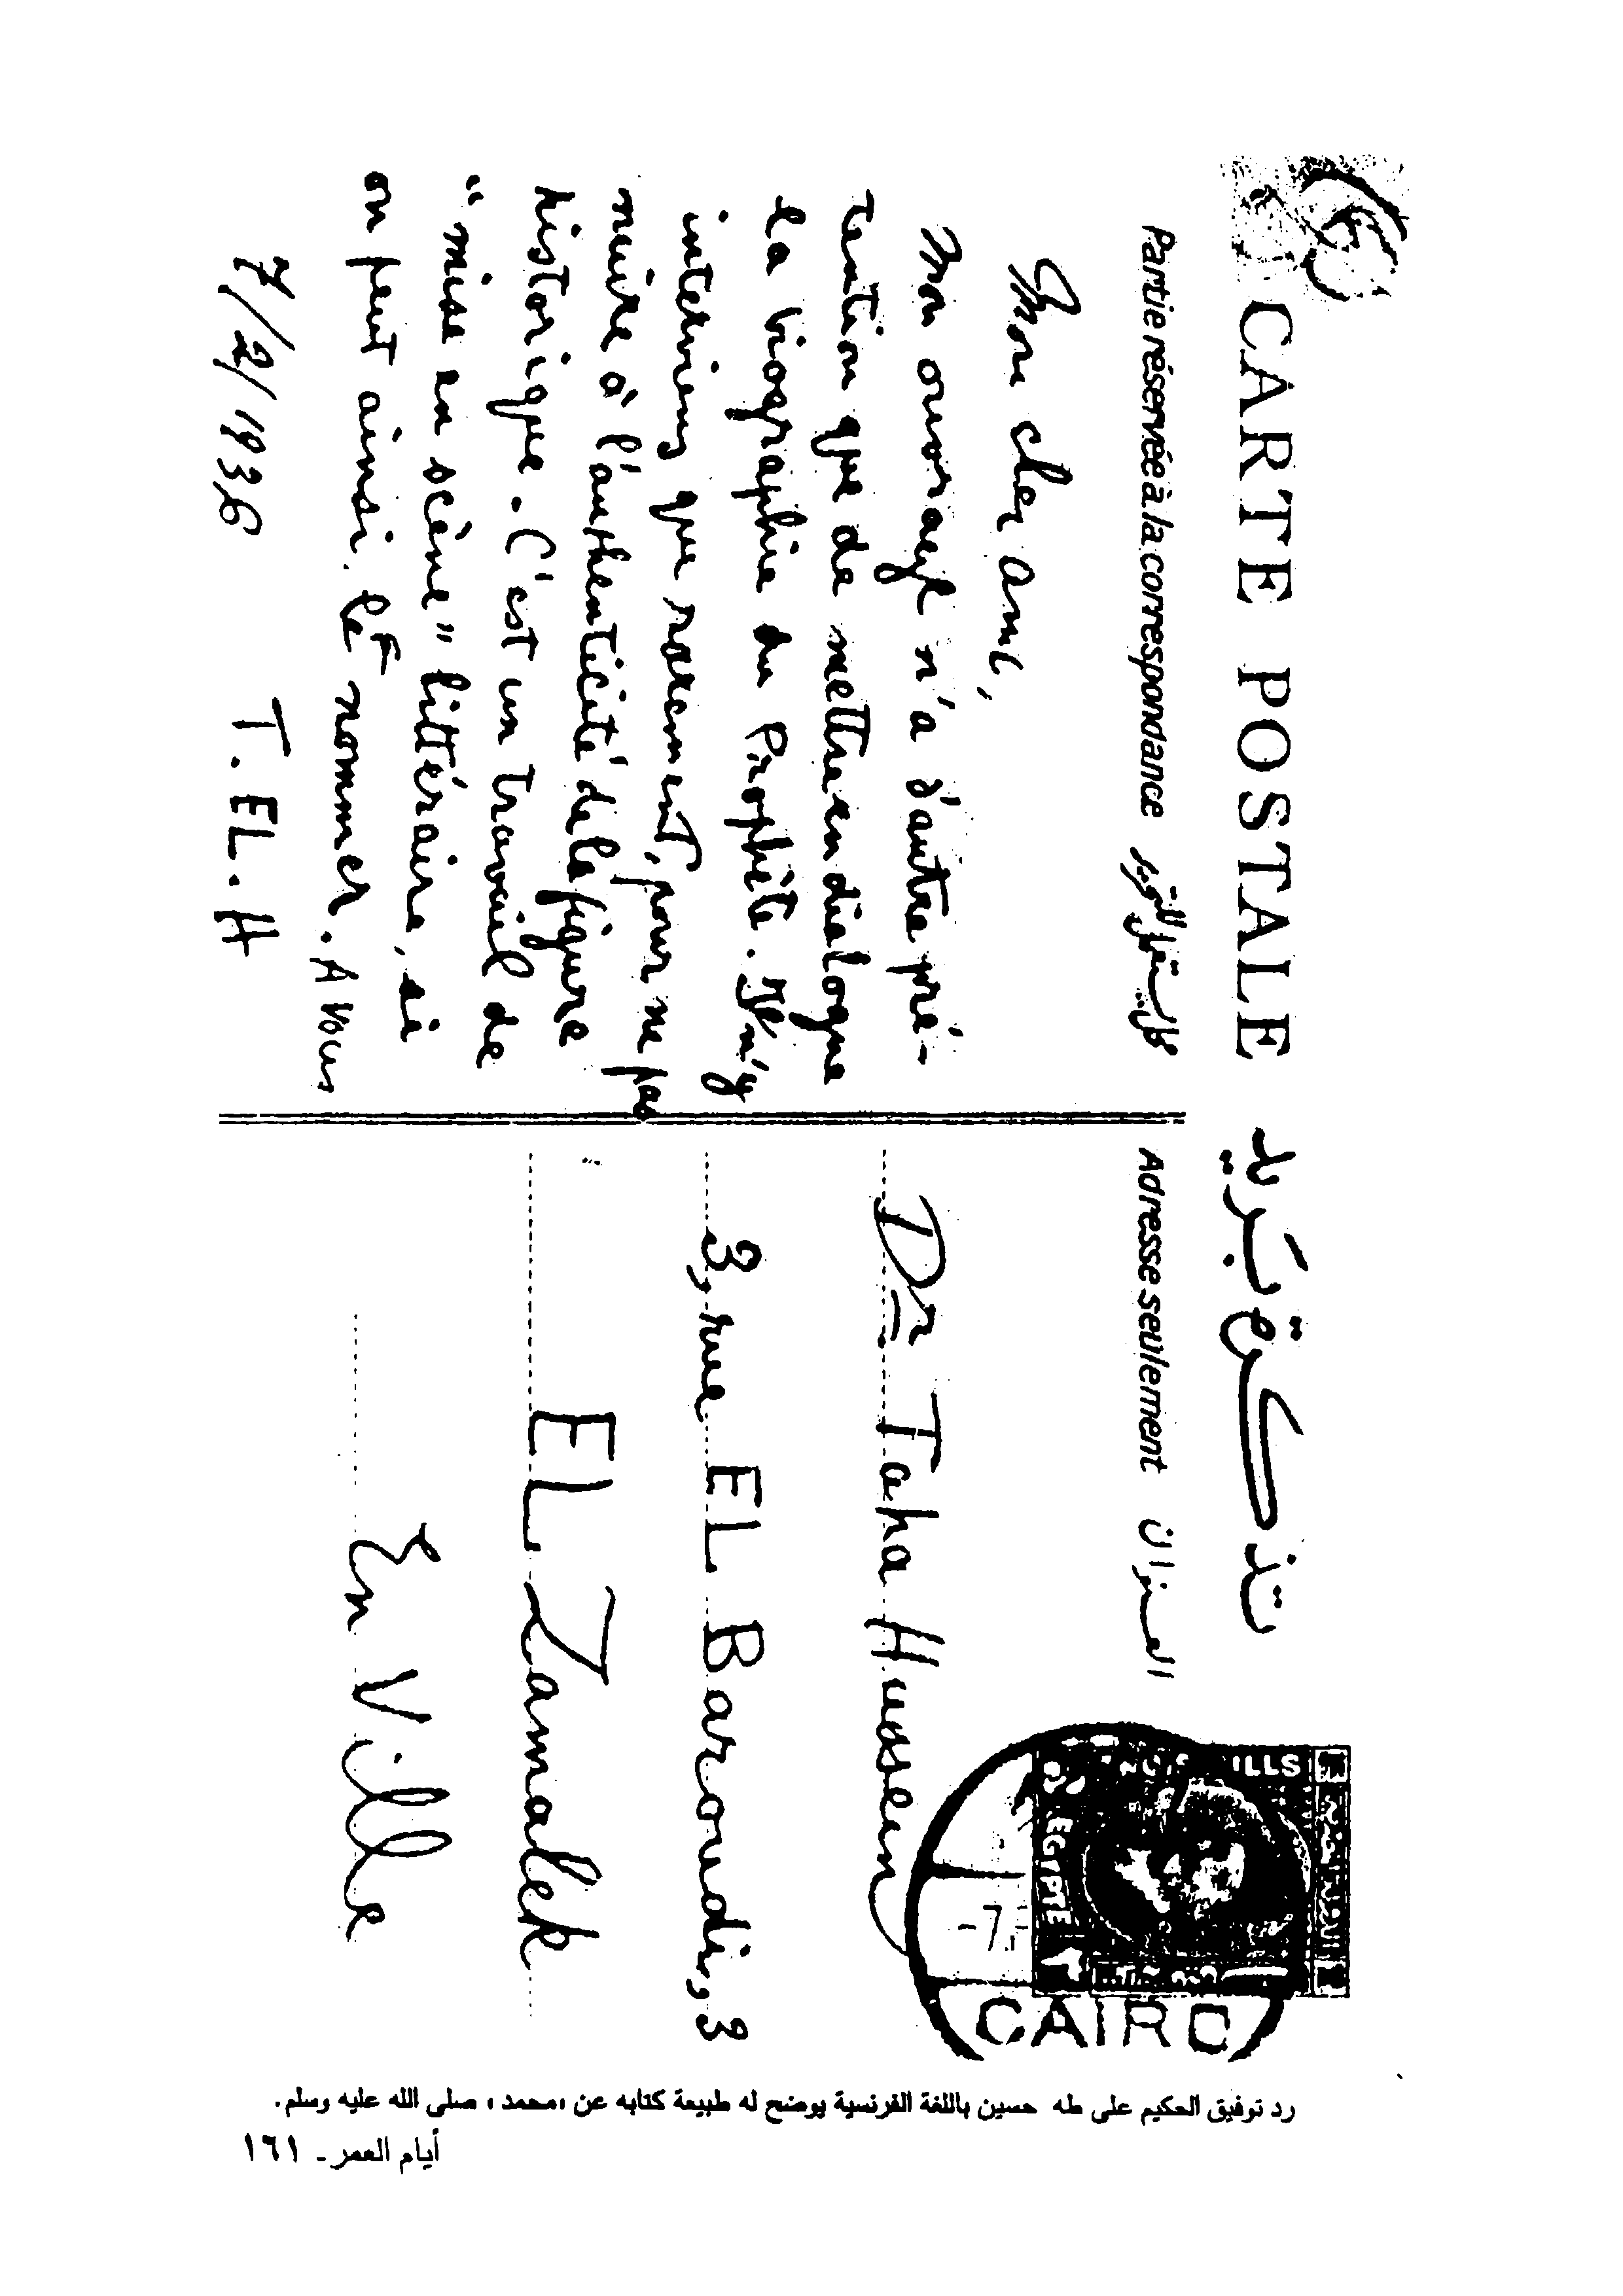 CARTE POSTALE تذكرة بريد
Partie réservée à la correspondance
Mon cher ami,
Mon ouvrage n'a d'autre pré-
tention que de mettre en dialogue
la biographie du Prophète. Je n'y
interviens que rarement, pour ne pas
nuire à l'authenticité de la figure
historique. C'est un travail de
"mise en scène" littéraire, si
on peut ainsi le nommer. A vous
7/2/1936 T. EL. H
Adresse seulement العنوان
Dr Taha Hussein
3, rue EL Baroudi, 3
EL Zamalek
En Ville
MILLS
EGYPTE
-7.
CAIRO
رد توفيق الحكيم على طه حسين باللغة الفرنسية يوضح له طبيعة كتابه عن «محمد» صلى الله عليه وسلم.
أيام العمر ـ ١٦١